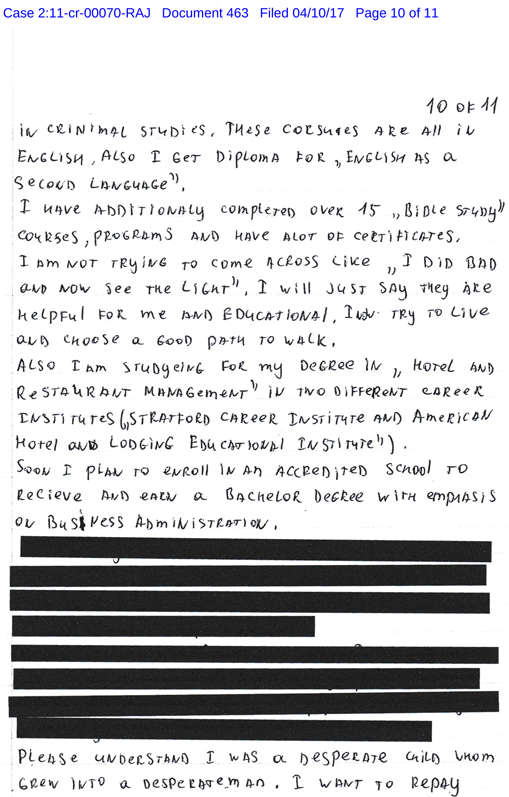 Case 2:11-cr-00070-RAJ Document 463 Filed 04/10/17 Page 10 of 11
10 OF 11
IN CRINIMAL STUDIES. THESE CORSURES ARE ALL IN
ENGLISH, ALSO I GET DIPLOMA FOR „ENGLISH AS a
SECOND LANGUAGE".
I HAVE ADDITIONALY COMPLETED OVER 15 „BIBLE STUDY"
COURSES, PROGRAMS AND HAVE ALOT OF CERTIFICATES.
I AM NOT TRYING TO COME ACROSS LIKE „I DID BAD
AND NOW SEE THE LIGHT". I WILL JUST SAY THEY ARE
HELPFUL FOR ME AND EDUCATIONAL. I TRY TO LIVE
AND CHOOSE A GOOD PATH TO WALK.
ALSO I AM STUDYEING FOR MY DEGREE IN „HOTEL AND
RESTAURANT MANAGEMENT" IN TWO DIFFERENT CAREER
INSTITUTES („STRATFORD CAREER INSTITUTE AND AMERICAN
HOTEL AND LODGING EDUCATIONAL INSTITUTE").
SOON I PLAN TO ENROLL IN AN ACCREDITED SCHOOL TO
RECIEVE AND EARN a BACHELOR DEGREE WITH EMPHASIS
ON BUSINESS ADMINISTRATION.
PLEASE UNDERSTAND I WAS a DESPERATE CHILD WHOM
GREW INTO a DESPERATE MAN. I WANT TO REPAY